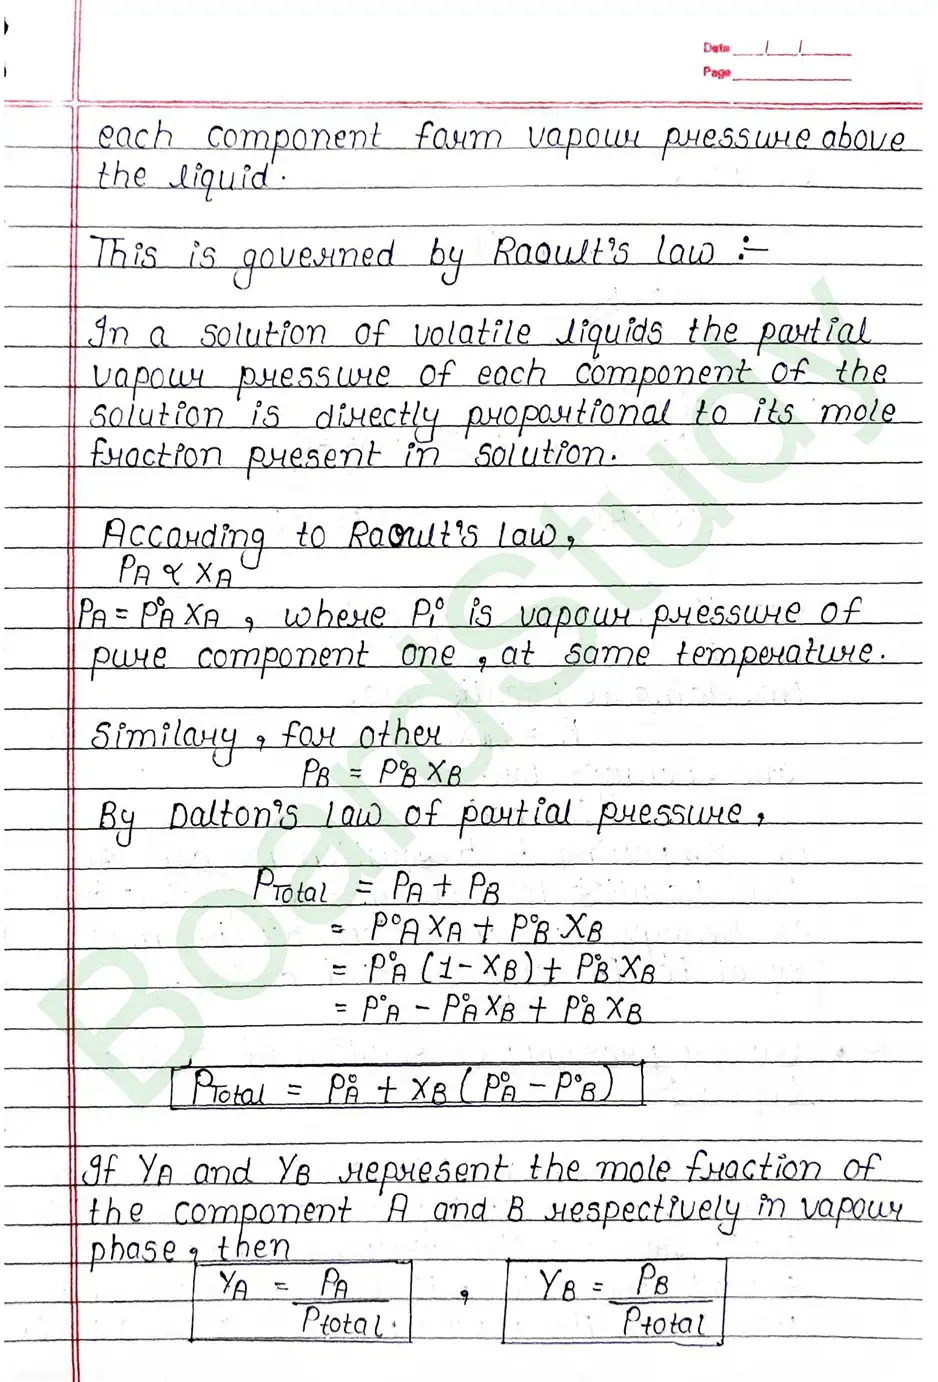 Date / /
Page
each component form vapour pressure above
the liquid.
This is governed by Raoult's law :-
In a solution of volatile liquids the partial
vapour pressure of each component of the
solution is directly proportional to its mole
fraction present in solution.
According to Raoult's law,
PA ∝ XA
PA = P°A XA , where P₁° is vapour pressure of
pure component one , at same temperature.
Similary, for other
PB = P°B XB
By Dalton's law of partial pressure,
PTotal = PA + PB
= P°A XA + P°B XB
= P°A (1 - XB) + P°B XB
= P°A - P°A XB + P°B XB
PTotal = P°A + XB (P°A - P°B)
If YA and YB represent the mole fraction of
the component A and B respectively in vapour
phase, then
YA = PA / Ptotal. , YB = PB / Ptotal
BoardStudy